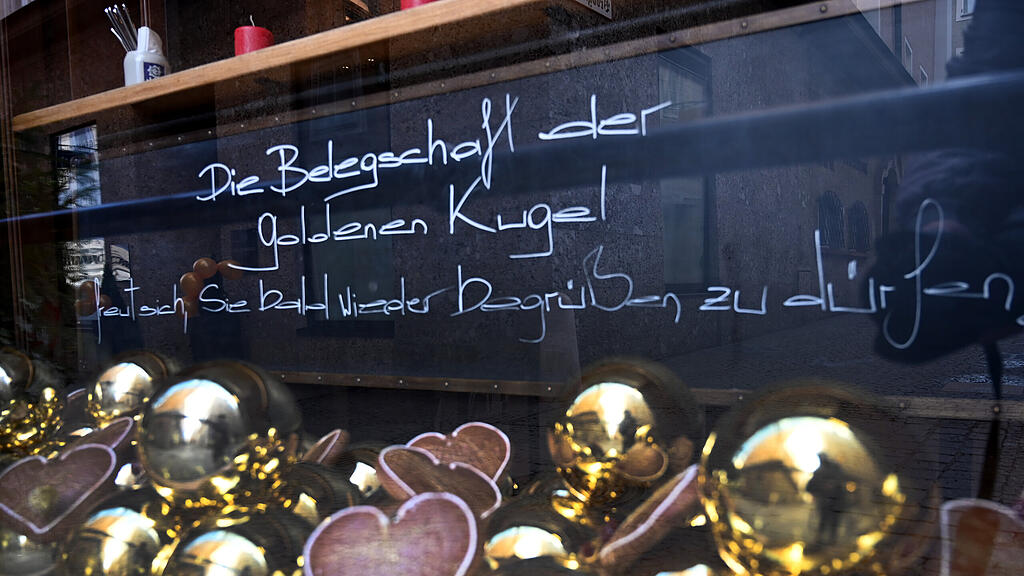 Die Belegschaft der
goldenen Kugel
freut sich Sie bald wieder begrüßen zu dürfen,